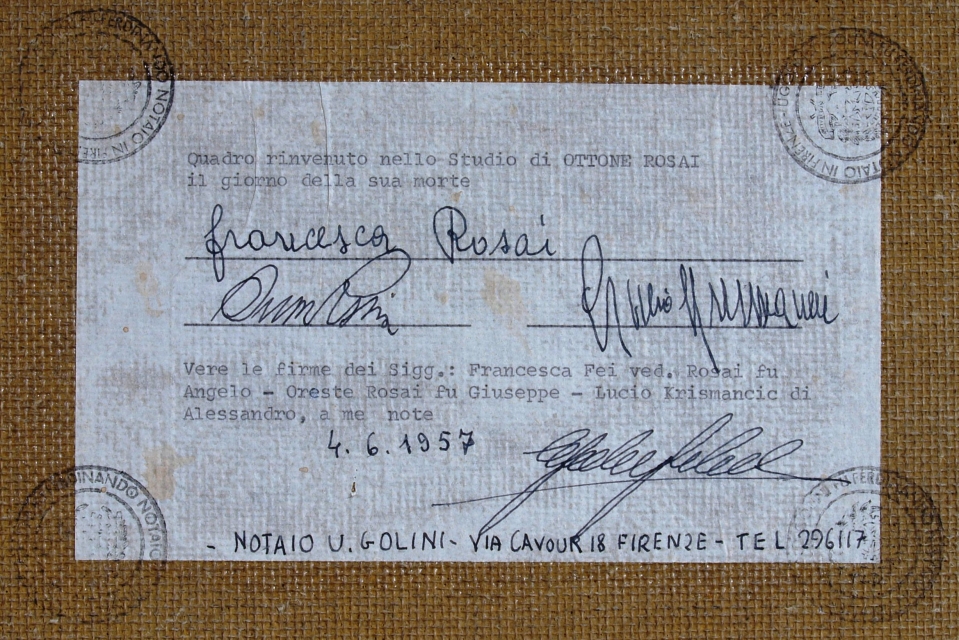 Quadro rinvenuto nello Studio di OTTONE ROSAI
il giorno della sua morte
Francesca Rosai
Vere le firme dei Sigg.: Francesca Fei ved. Rosai fu
Angelo - Oreste Rosai fu Giuseppe - Lucio Krismancic di
Alessandro, a me note
4.6.1957
- NOTAIO U. GOLINI - VIA CAVOUR 18 FIRENZE - TEL 296117
FERDINANDO NOTAIO IN FIRENZE
NOTAIO IN FIRENZE
FERDINANDO NOTAIO
FERDINANDO